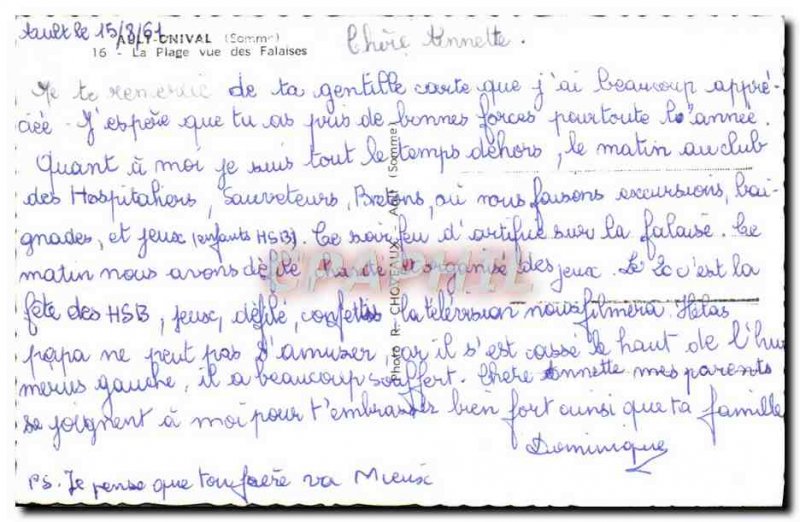 Ault le 15/8/61
AULT-ONIVAL (Somme)
16 - La Plage vue des Falaises
Chère Annette.
Je te remercie de ta gentille carte que j'ai beaucoup appré-
ciée. J'espère que tu as pris de bonnes forces pour toute l'année.
Quant à moi je suis tout le temps dehors, le matin au club
des Hospitaliers, Sauveteurs, Bretons, où nous faisons excursions, bai-
gnades, et jeux (enfants HSB). Ce soir feu d'artifice sur la falaise. Ce
matin nous avons défilé organisé des jeux. Le 20 c'est la
fête des HSB, jeux, défilé, confettis la télévision nous filmera. Hélas
papa ne peut pas s'amuser, car il s'est cassé le haut de l'hu
merus gauche, il a beaucoup souffert. Chère Annette mes parents
se joignent à moi pour t'embrasser bien fort ainsi que ta famille
Dominique
PS. Je pense que ton frère va Mieux
Photo R. CHOVEAUX - Ault (Somme)
CPAPHIL